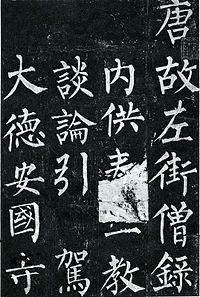 唐故左街僧錄
內供奉三教
談論引 駕
大德安國寺